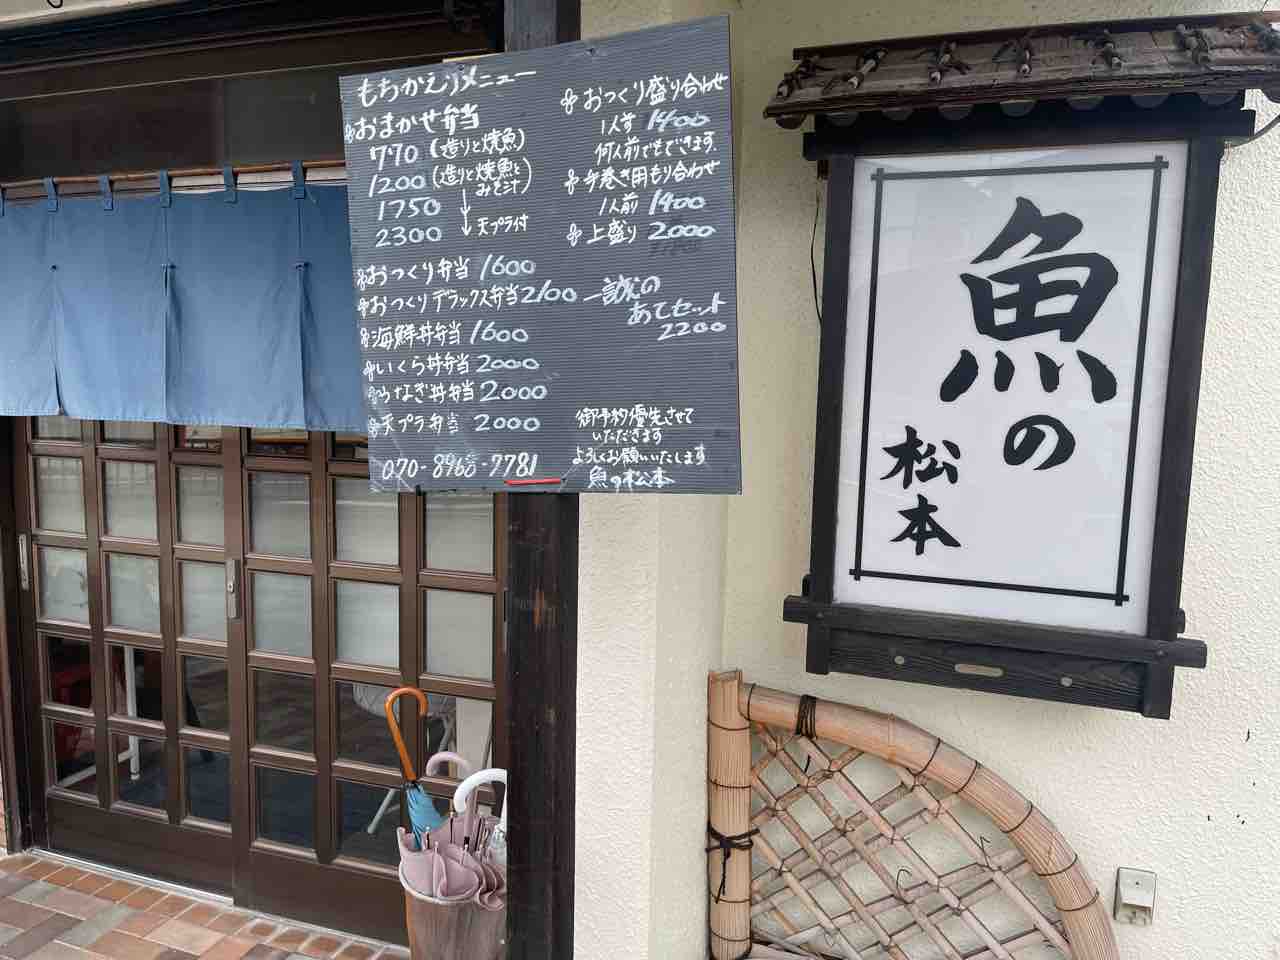 もちかえりメニュー
おまかせ弁当
770(造りと焼魚)
1200(造りと焼魚とみそ汁)
1750
2300 天プラ付
おつくり弁当 1600
おつくりデラックス弁当 2100
海鮮丼弁当 1600
いくら丼弁当 2000
うなぎ丼弁当 2000
天プラ弁当 2000
070-8968-7781
おつくり盛り合わせ
1人前 1400
何人前でもできます.
手巻き用もり合わせ
1人前 1400
上盛り 2000
誠の
あてセット
2200
御予約優先させて
いただきます
よろしくお願いいたします
魚の松本
魚の
松本